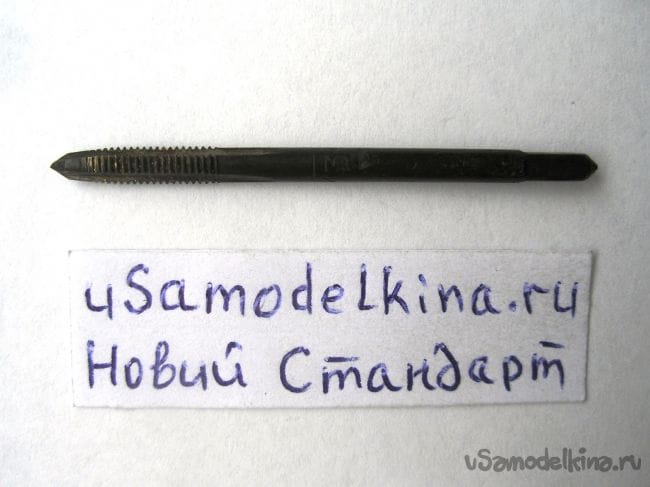 uSamodelkina.ru
Новий Стандарт
uSamodelkina.ru